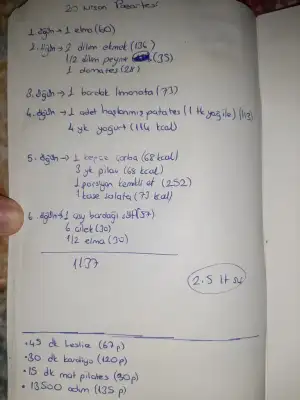 20 Nisan Pazartesi
1. öğün → 1 elma (60)
2. öğün → 2 dilim ekmek (136)
1/2 dilim peynir (35)
1 domates (28)
3. öğün → 1 bardak limonata (73)
4. öğün → 1 adet haşlanmış patates (1 tk yağ ile) (113)
4 yk yoğurt (114 kcal)
5. öğün → 1 kepçe çorba (68 kcal)
3 yk pilav (68 kcal)
1 porsiyon kemikli et (252)
1 kase salata (73 kcal)
6. öğün → 1 çay bardağı süt (57)
6 çilek (30)
1/2 elma (30)
1137
2.5 lt su
• 45 dk (67 p)
• 30 dk kardiyo (120 p)
• 15 dk mat pilates (30 p)
• 13500 adım (135 p)